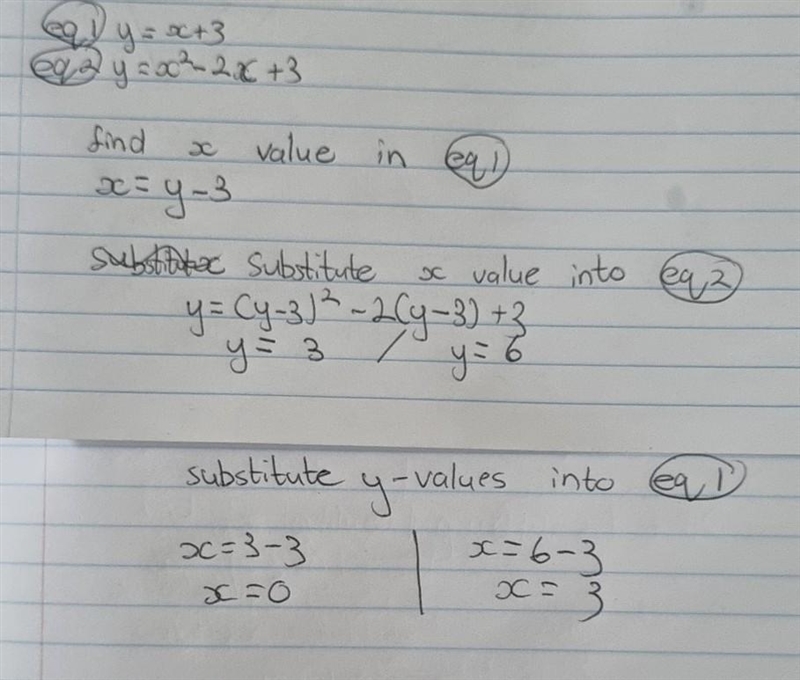 eq1 y = x+3
eq2 y = x²-2x+3
find x value in eq1
x = y-3
substitute x value into eq2
y = (y-3)² - 2(y-3) + 3
y = 3 / y = 6
substitute y-values into eq1
x = 3-3 | x = 6-3
x = 0 | x = 3